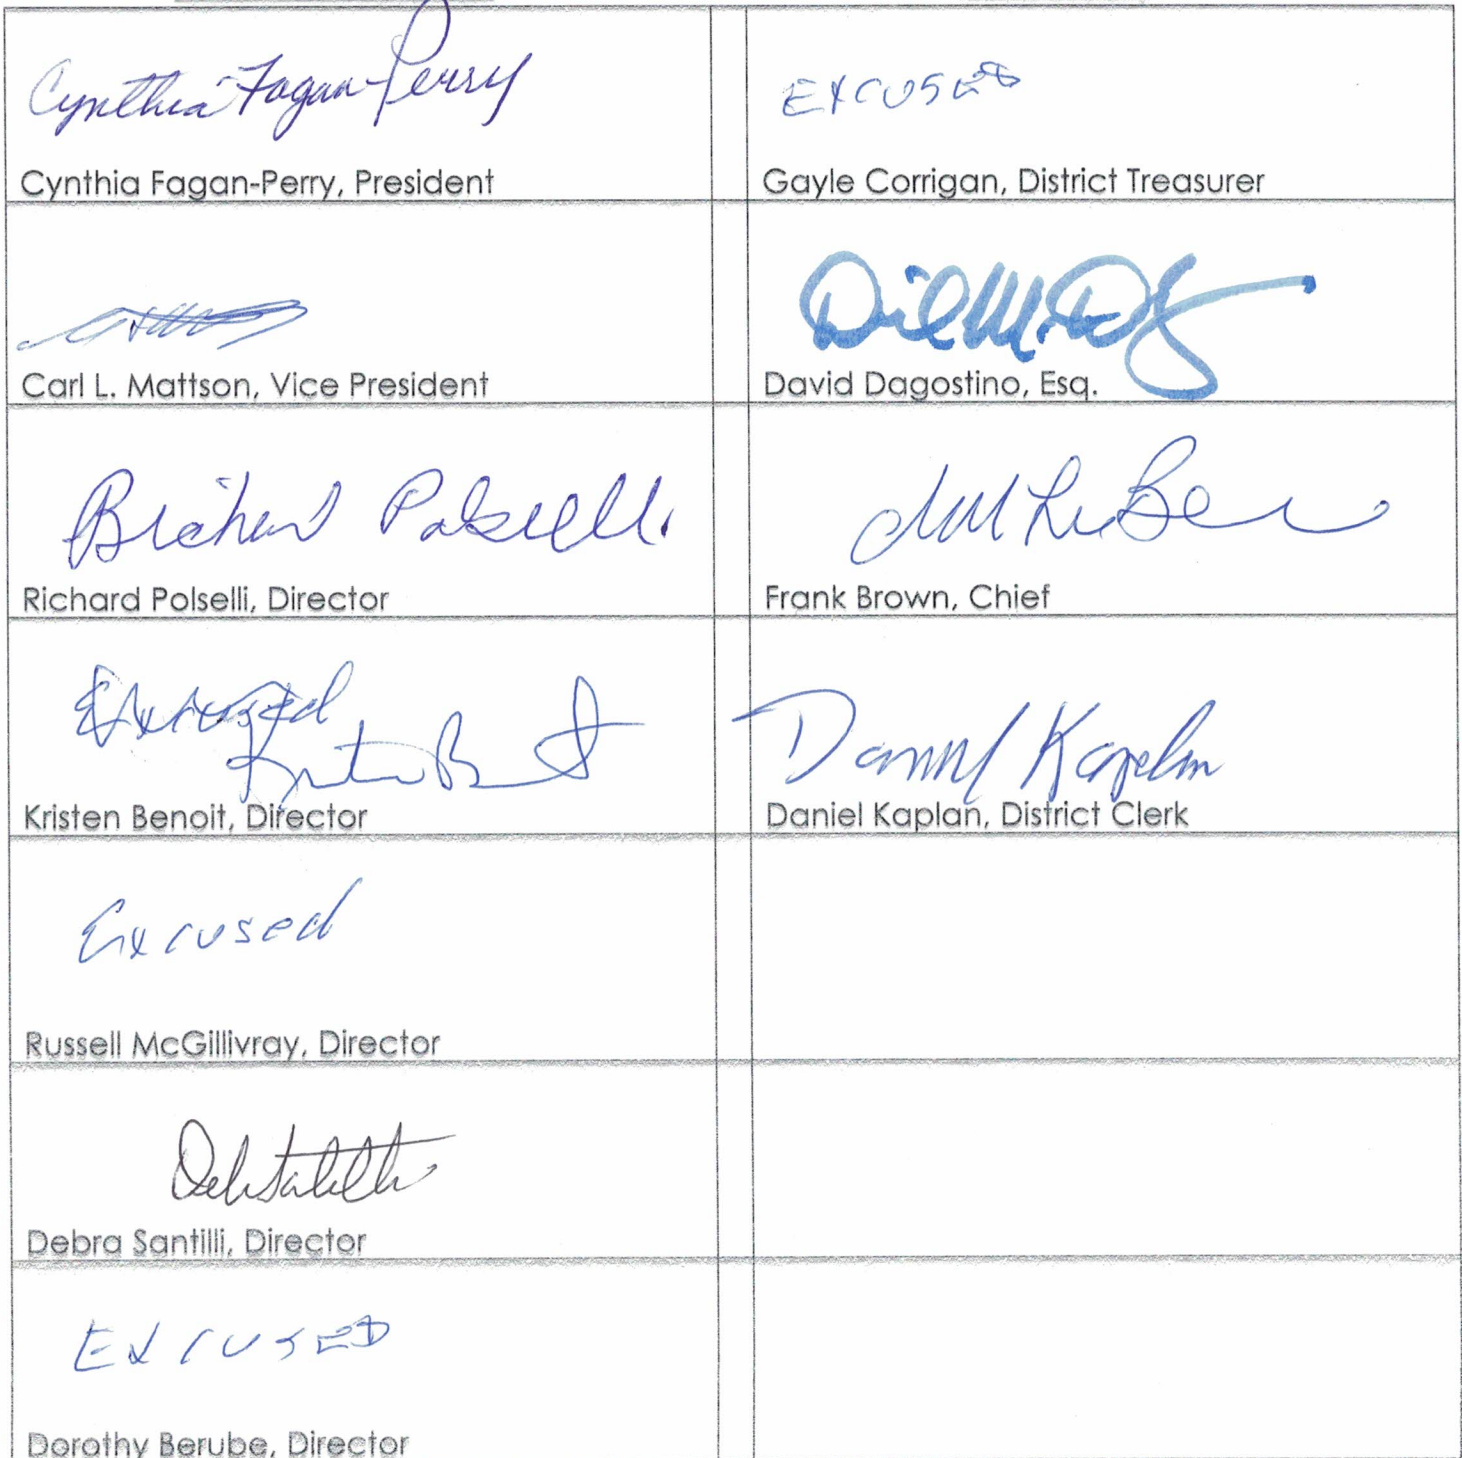 Cynthia Fagan-Perry
EXCUSED
Cynthia Fagan-Perry, President
Gayle Corrigan, District Treasurer
Carl L. Mattson, Vice President
David Dagostino, Esq.
Richard Polselli
Richard Polselli, Director
Frank Brown, Chief
Excused
Kristen Benoit
Daniel Kaplan
Kristen Benoit, Director
Daniel Kaplan, District Clerk
Excused
Russell McGillivray, Director
Debra Santilli, Director
EXCUSED
Dorothy Berube, Director